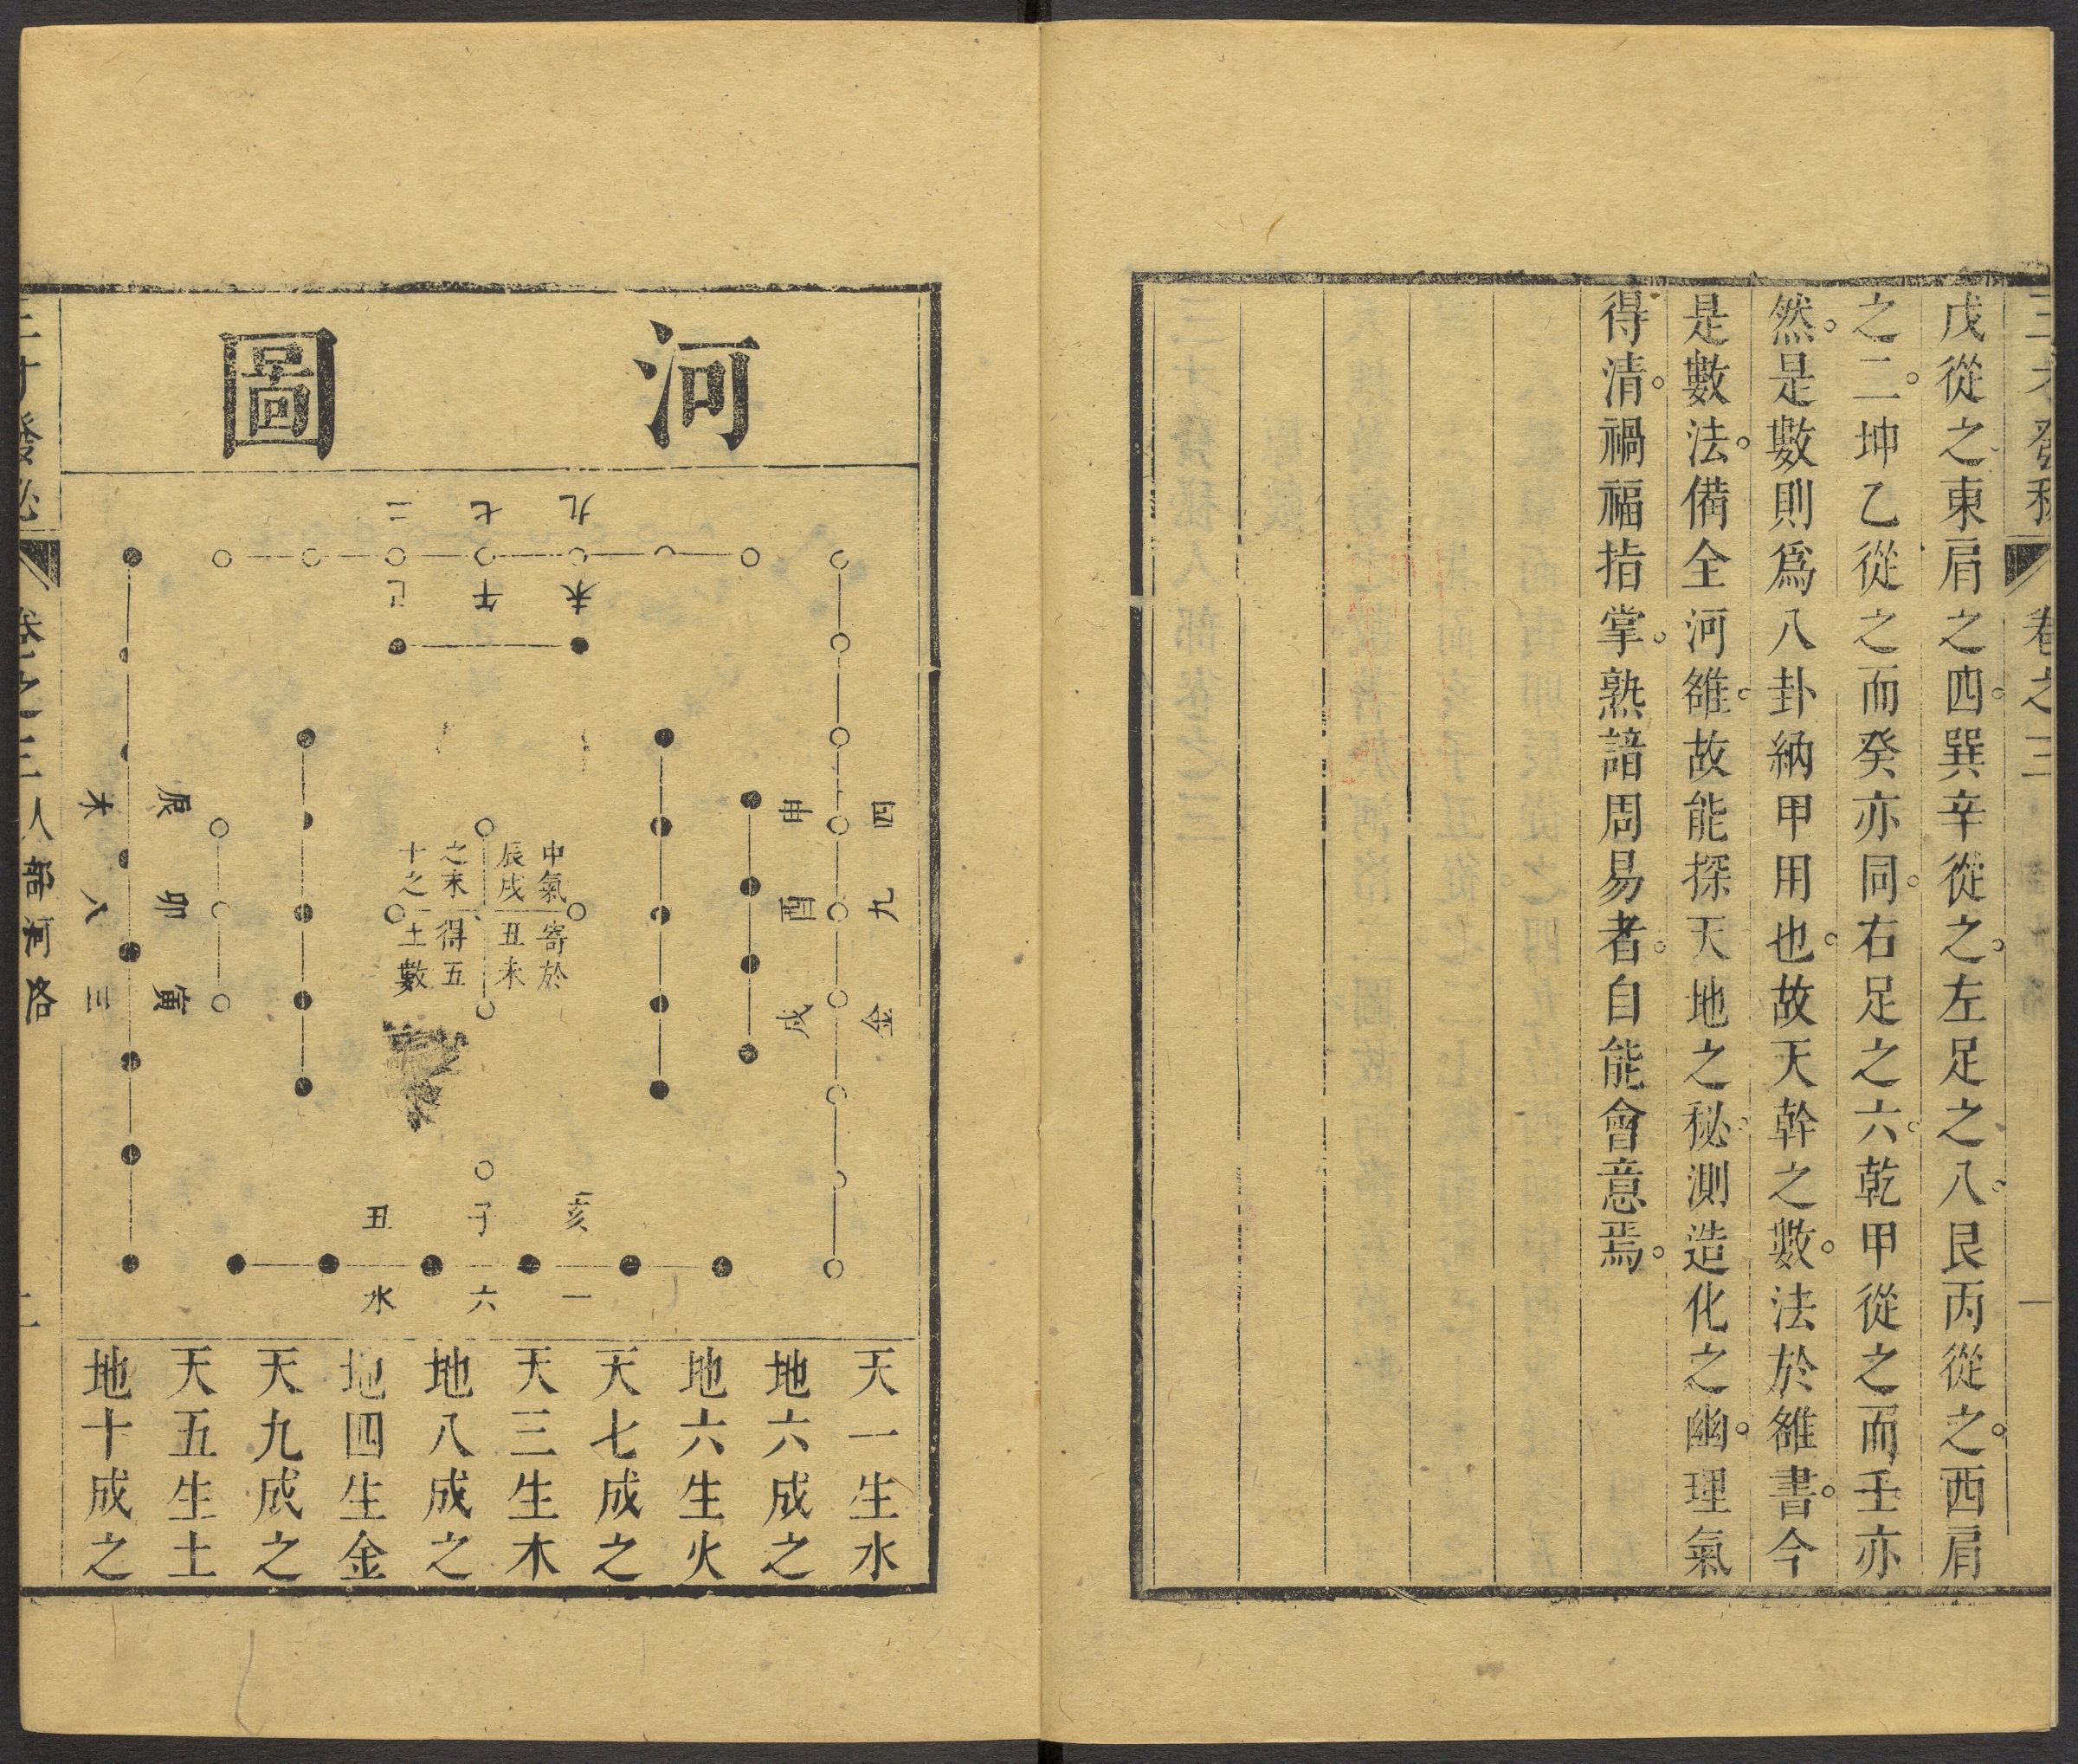 三才發秘 卷之三 一
戊從之東肩之四巽辛從之左足之八艮丙從之西肩
之二坤乙從之而癸亦同右足之六乾甲從之而壬亦
然是數則爲八卦納甲用也故天幹之數法於雒書今
是數法備全河雒故能探天地之秘測造化之幽理氣
得清禍福指掌熟諳周易者自能會意焉
河圖
九七二
未午巳
四九金
申酉戌
中氣寄於
辰戌丑未
之末得五
十之土數
辰卯寅
木八三
亥子丑
一六水
天一生水
地六成之
地六生火
天七成之
天三生木
地八成之
地四生金
天九成之
天五生土
地十成之
三才發秘 卷之三 人部河洛 二